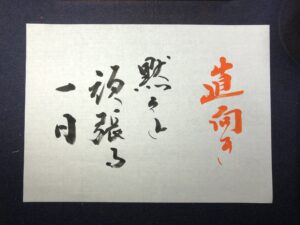 直向き
黙々と
頑張る
一日